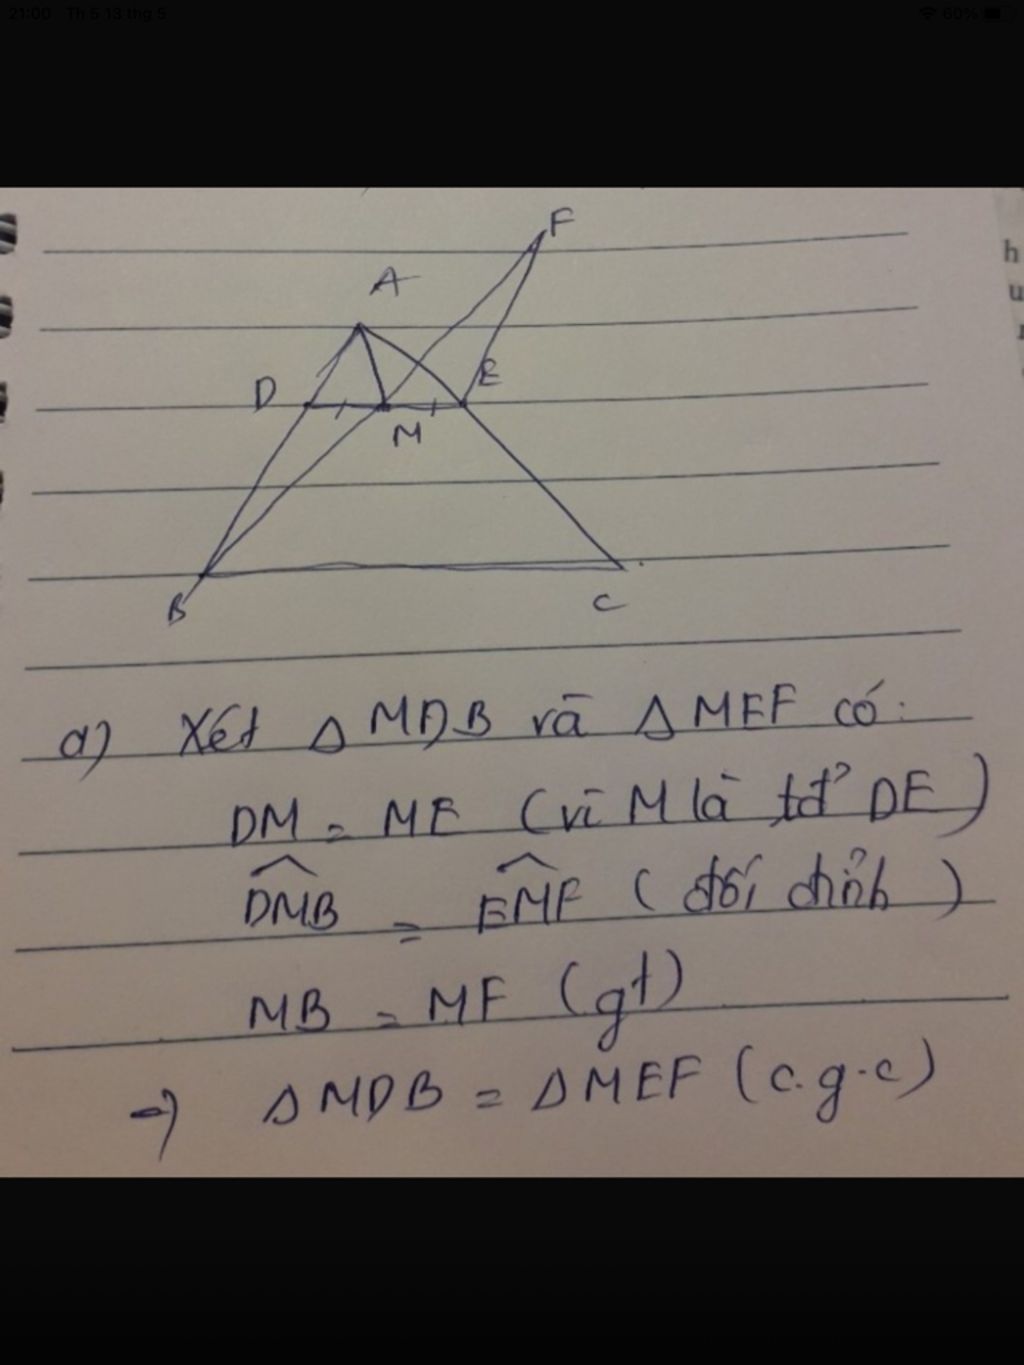 21:00 Th 5 13 thg 5
60%
F
A
D
E
M
B
C
h
u
a) Xét Δ MDB và Δ MEF có:
DM = ME (vì M là tđ' DE)
DMB = EMF (đối đỉnh)
MB = MF (gt)
=) Δ MDB = Δ MEF (c.g.c)